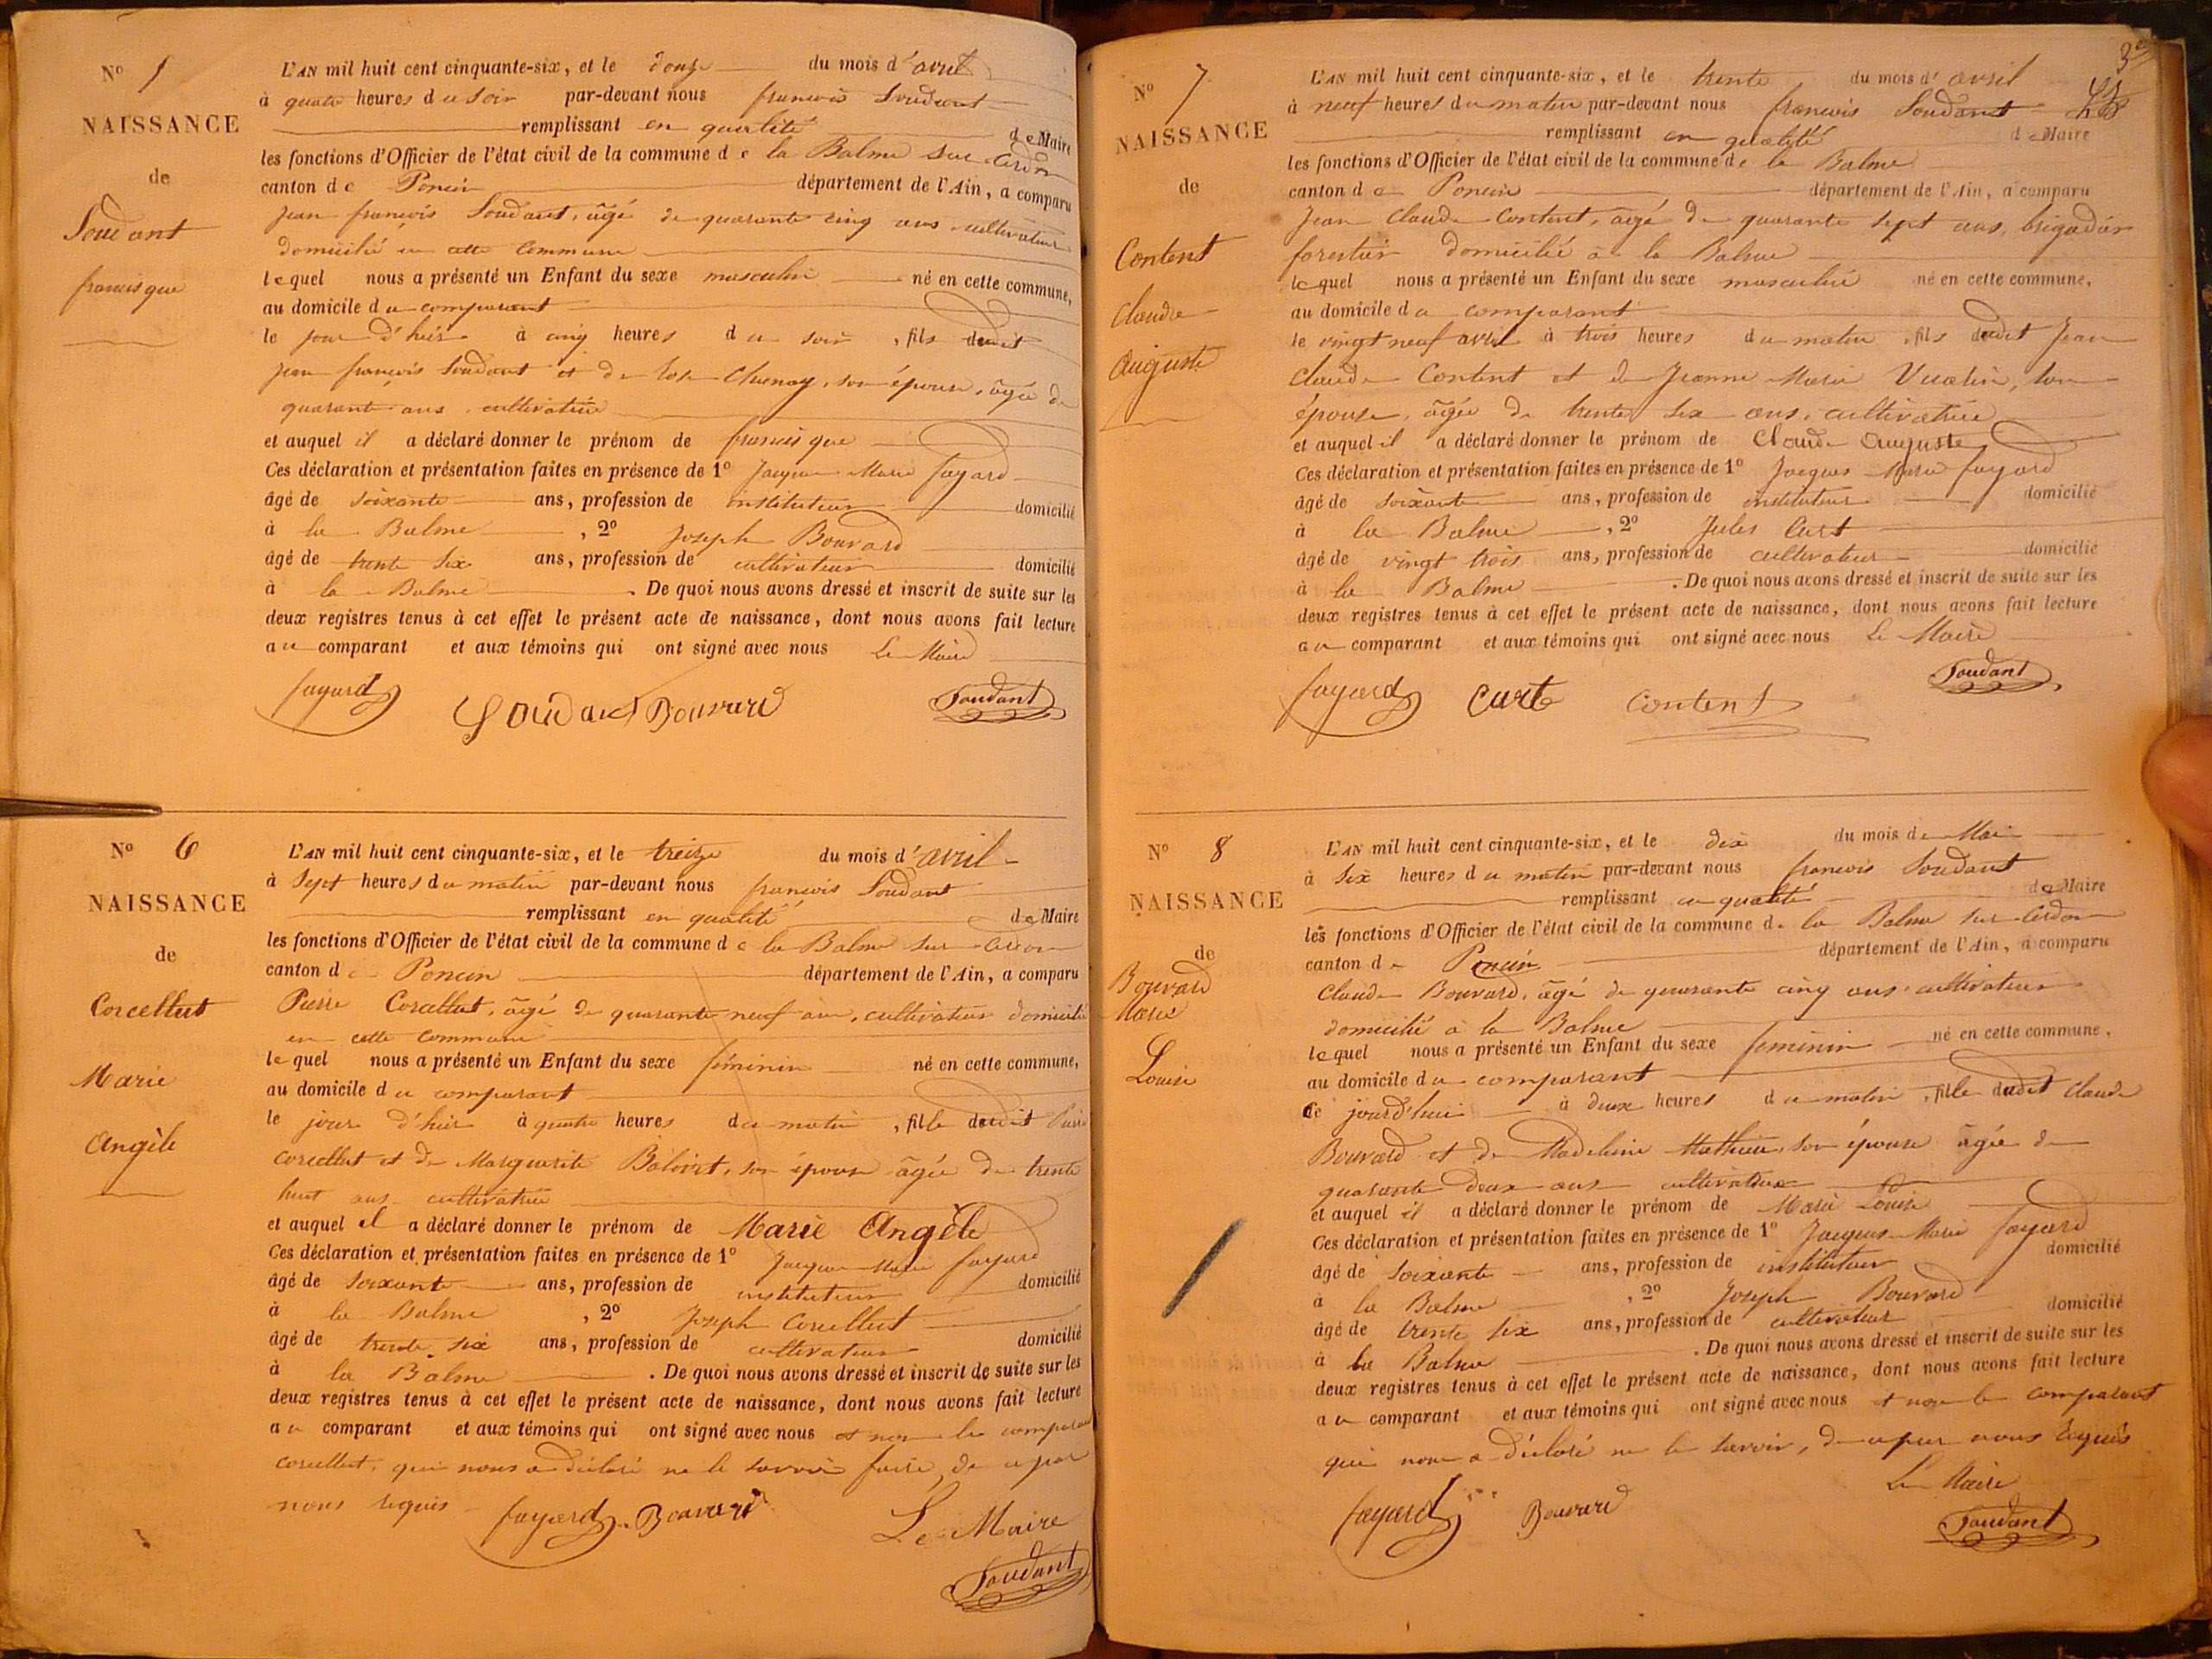 N° 5
NAISSANCE
de
Soudant
francisque
L'AN mil huit cent cinquante-six, et le douze du mois d'avril
à quatre heures du soir par-devant nous françois Soudant
remplissant en qualité de Maire
les fonctions d'Officier de l'état civil de la commune de la Balme sur Cerdon
canton de Poncin département de l'Ain, a comparu
Jean françois Soudant, âgé de quarante cinq ans, cultivateur
domicilié en cette commune
lequel nous a présenté un Enfant du sexe masculin né en cette commune,
au domicile du comparant
le jour d'hier à cinq heures du soir, fils dudit
Jean françois Soudant et de Rose son épouse, âgée de
quarante ans, cultivatrice
et auquel il a déclaré donner le prénom de francisque
Ces déclaration et présentation faites en présence de 1° Jacques Marie fayard
âgé de soixante ans, profession de instituteur domicilié
à la Balme, 2° Joseph Bouvard
âgé de trente six ans, profession de cultivateur domicilié
à la Balme. De quoi nous avons dressé et inscrit de suite sur les
deux registres tenus à cet effet le présent acte de naissance, dont nous avons fait lecture
au comparant et aux témoins qui ont signé avec nous Le Maire
fayard Soudant Bouvard Soudant
N° 6
NAISSANCE
de
Corcellut
Marie
Angèle
L'AN mil huit cent cinquante-six, et le treize du mois d'avril
à sept heures du matin par-devant nous françois Soudant
remplissant en qualité de Maire
les fonctions d'Officier de l'état civil de la commune de la Balme sur Cerdon
canton de Poncin département de l'Ain, a comparu
Pierre Corcellut, âgé de quarante neuf ans, cultivateur domicilié
en cette commune
lequel nous a présenté un Enfant du sexe féminin né en cette commune,
au domicile du comparant
le jour d'hier à quatre heures du matin, fille dudit Pierre
Corcellut et de Marguerite son épouse âgée de trente
huit ans cultivatrice
et auquel il a déclaré donner le prénom de Marie Angèle
Ces déclaration et présentation faites en présence de 1° Jacques Marie fayard
âgé de soixante ans, profession de instituteur domicilié
à la Balme, 2° Joseph Corcellut
âgé de trente six ans, profession de cultivateur domicilié
à la Balme. De quoi nous avons dressé et inscrit de suite sur les
deux registres tenus à cet effet le présent acte de naissance, dont nous avons fait lecture
au comparant et aux témoins qui ont signé avec nous et non le comparant
corcellut, qui nous a déclaré ne le savoir faire, de ce par
nous requis fayard Bouvard Le Maire
Soudant
3e
N° 7
NAISSANCE
de
Content
Claude
Auguste
L'AN mil huit cent cinquante-six, et le trente du mois d'avril
à neuf heures du matin par-devant nous françois Soudant
remplissant en qualité de Maire
les fonctions d'Officier de l'état civil de la commune de la Balme
canton de Poncin département de l'Ain, a comparu
Jean Claude Content, âgé de quarante sept ans, brigadier
forestier domicilié à la Balme
lequel nous a présenté un Enfant du sexe masculin né en cette commune,
au domicile du comparant
le vingt neuf avril à trois heures du matin, fils dudit Jean
Claude Content et de Jeanne Marie son
épouse, âgée de trente six ans, cultivatrice
et auquel il a déclaré donner le prénom de Claude Auguste
Ces déclaration et présentation faites en présence de 1° Jacques Marie fayard
âgé de soixante ans, profession de instituteur domicilié
à la Balme, 2° Jules Curt
âgé de vingt trois ans, profession de cultivateur domicilié
à la Balme. De quoi nous avons dressé et inscrit de suite sur les
deux registres tenus à cet effet le présent acte de naissance, dont nous avons fait lecture
au comparant et aux témoins qui ont signé avec nous Le Maire
fayard Curt Content Soudant
N° 8
NAISSANCE
de
Bouvard
Marie
Louise
L'AN mil huit cent cinquante-six, et le dix du mois de Mai
à six heures du matin par-devant nous françois Soudant
remplissant en qualité de Maire
les fonctions d'Officier de l'état civil de la commune de la Balme sur Cerdon
canton de Poncin département de l'Ain, a comparu
Claude Bouvard, âgé de quarante cinq ans cultivateur
domicilié à la Balme
lequel nous a présenté un Enfant du sexe féminin né en cette commune,
au domicile du comparant
ce jourd'hui à deux heures du matin, fille dudit Claude
Bouvard et de Madeleine Mathieu, son épouse âgée de
quarante deux ans cultivatrice
et auquel il a déclaré donner le prénom de Marie Louise
Ces déclaration et présentation faites en présence de 1° Jacques Marie fayard
âgé de soixante ans, profession de instituteur domicilié
à la Balme, 2° Joseph Bouvard
âgé de trente six ans, profession de cultivateur domicilié
à la Balme. De quoi nous avons dressé et inscrit de suite sur les
deux registres tenus à cet effet le présent acte de naissance, dont nous avons fait lecture
au comparant et aux témoins qui ont signé avec nous et non le comparant
qui nous a déclaré ne le savoir, de ce par nous requis
Le Maire
fayard Bouvard Soudant